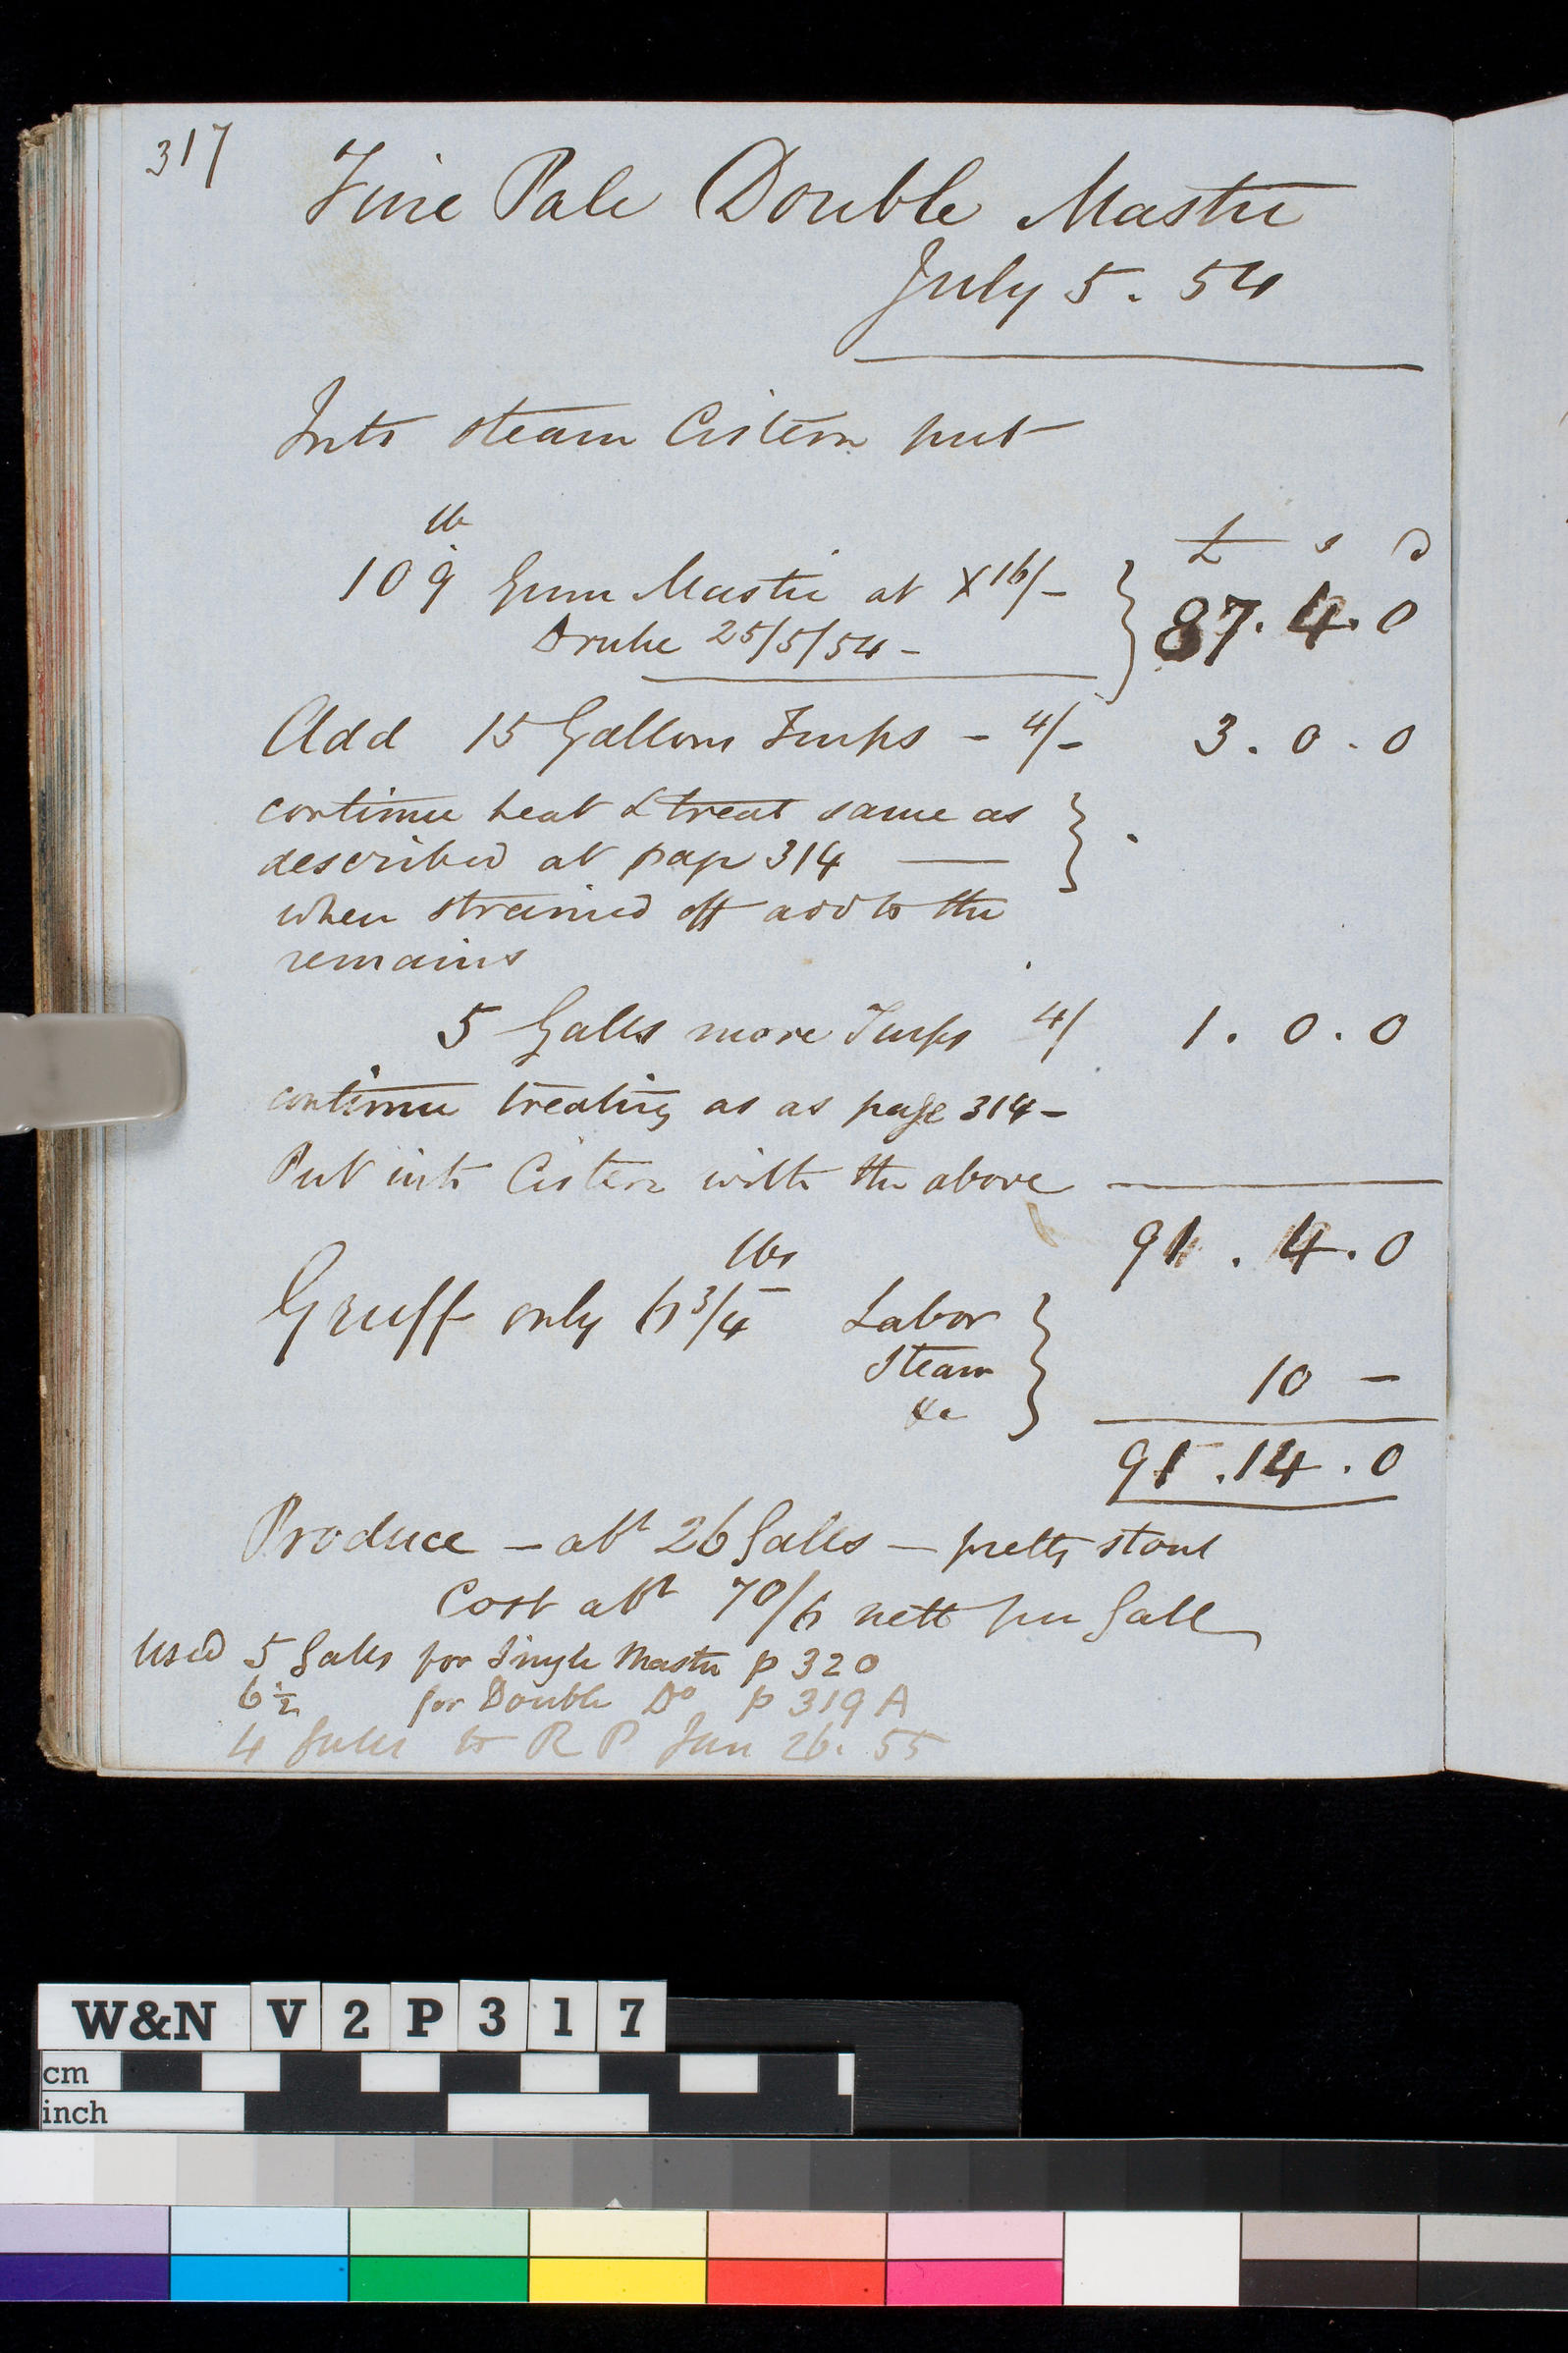 317
Fine Pale Double Mastic
July 5. 54
Into steam Cistern put
lb £ s d
109 Gum Mastic at X 16/– 87. 4. 0
Druke 25/5/54 –
Add 15 Gallons Turps – 4/– 3 . 0 . 0
continue heat & treat same as
described at page 314 —
when strained off add to the
remains
5 Galls more Turps 4/ 1 . 0 . 0
continue treating as as page 314 –
Put into Cistern with the above
91 . 4 . 0
lbs
Gruff only 6 3/4 Labor
Steam 10 –
&c
91 . 14 . 0
Produce – abt 26 Galls – pretty stout
Cost abt 70/6 nett per Gall
Used 5 Galls for Single Mastic p 320
6 1/2 for Double Do p 319 A
4 Galls to R P Jan 26. 55
W&N V2P317
cm
inch